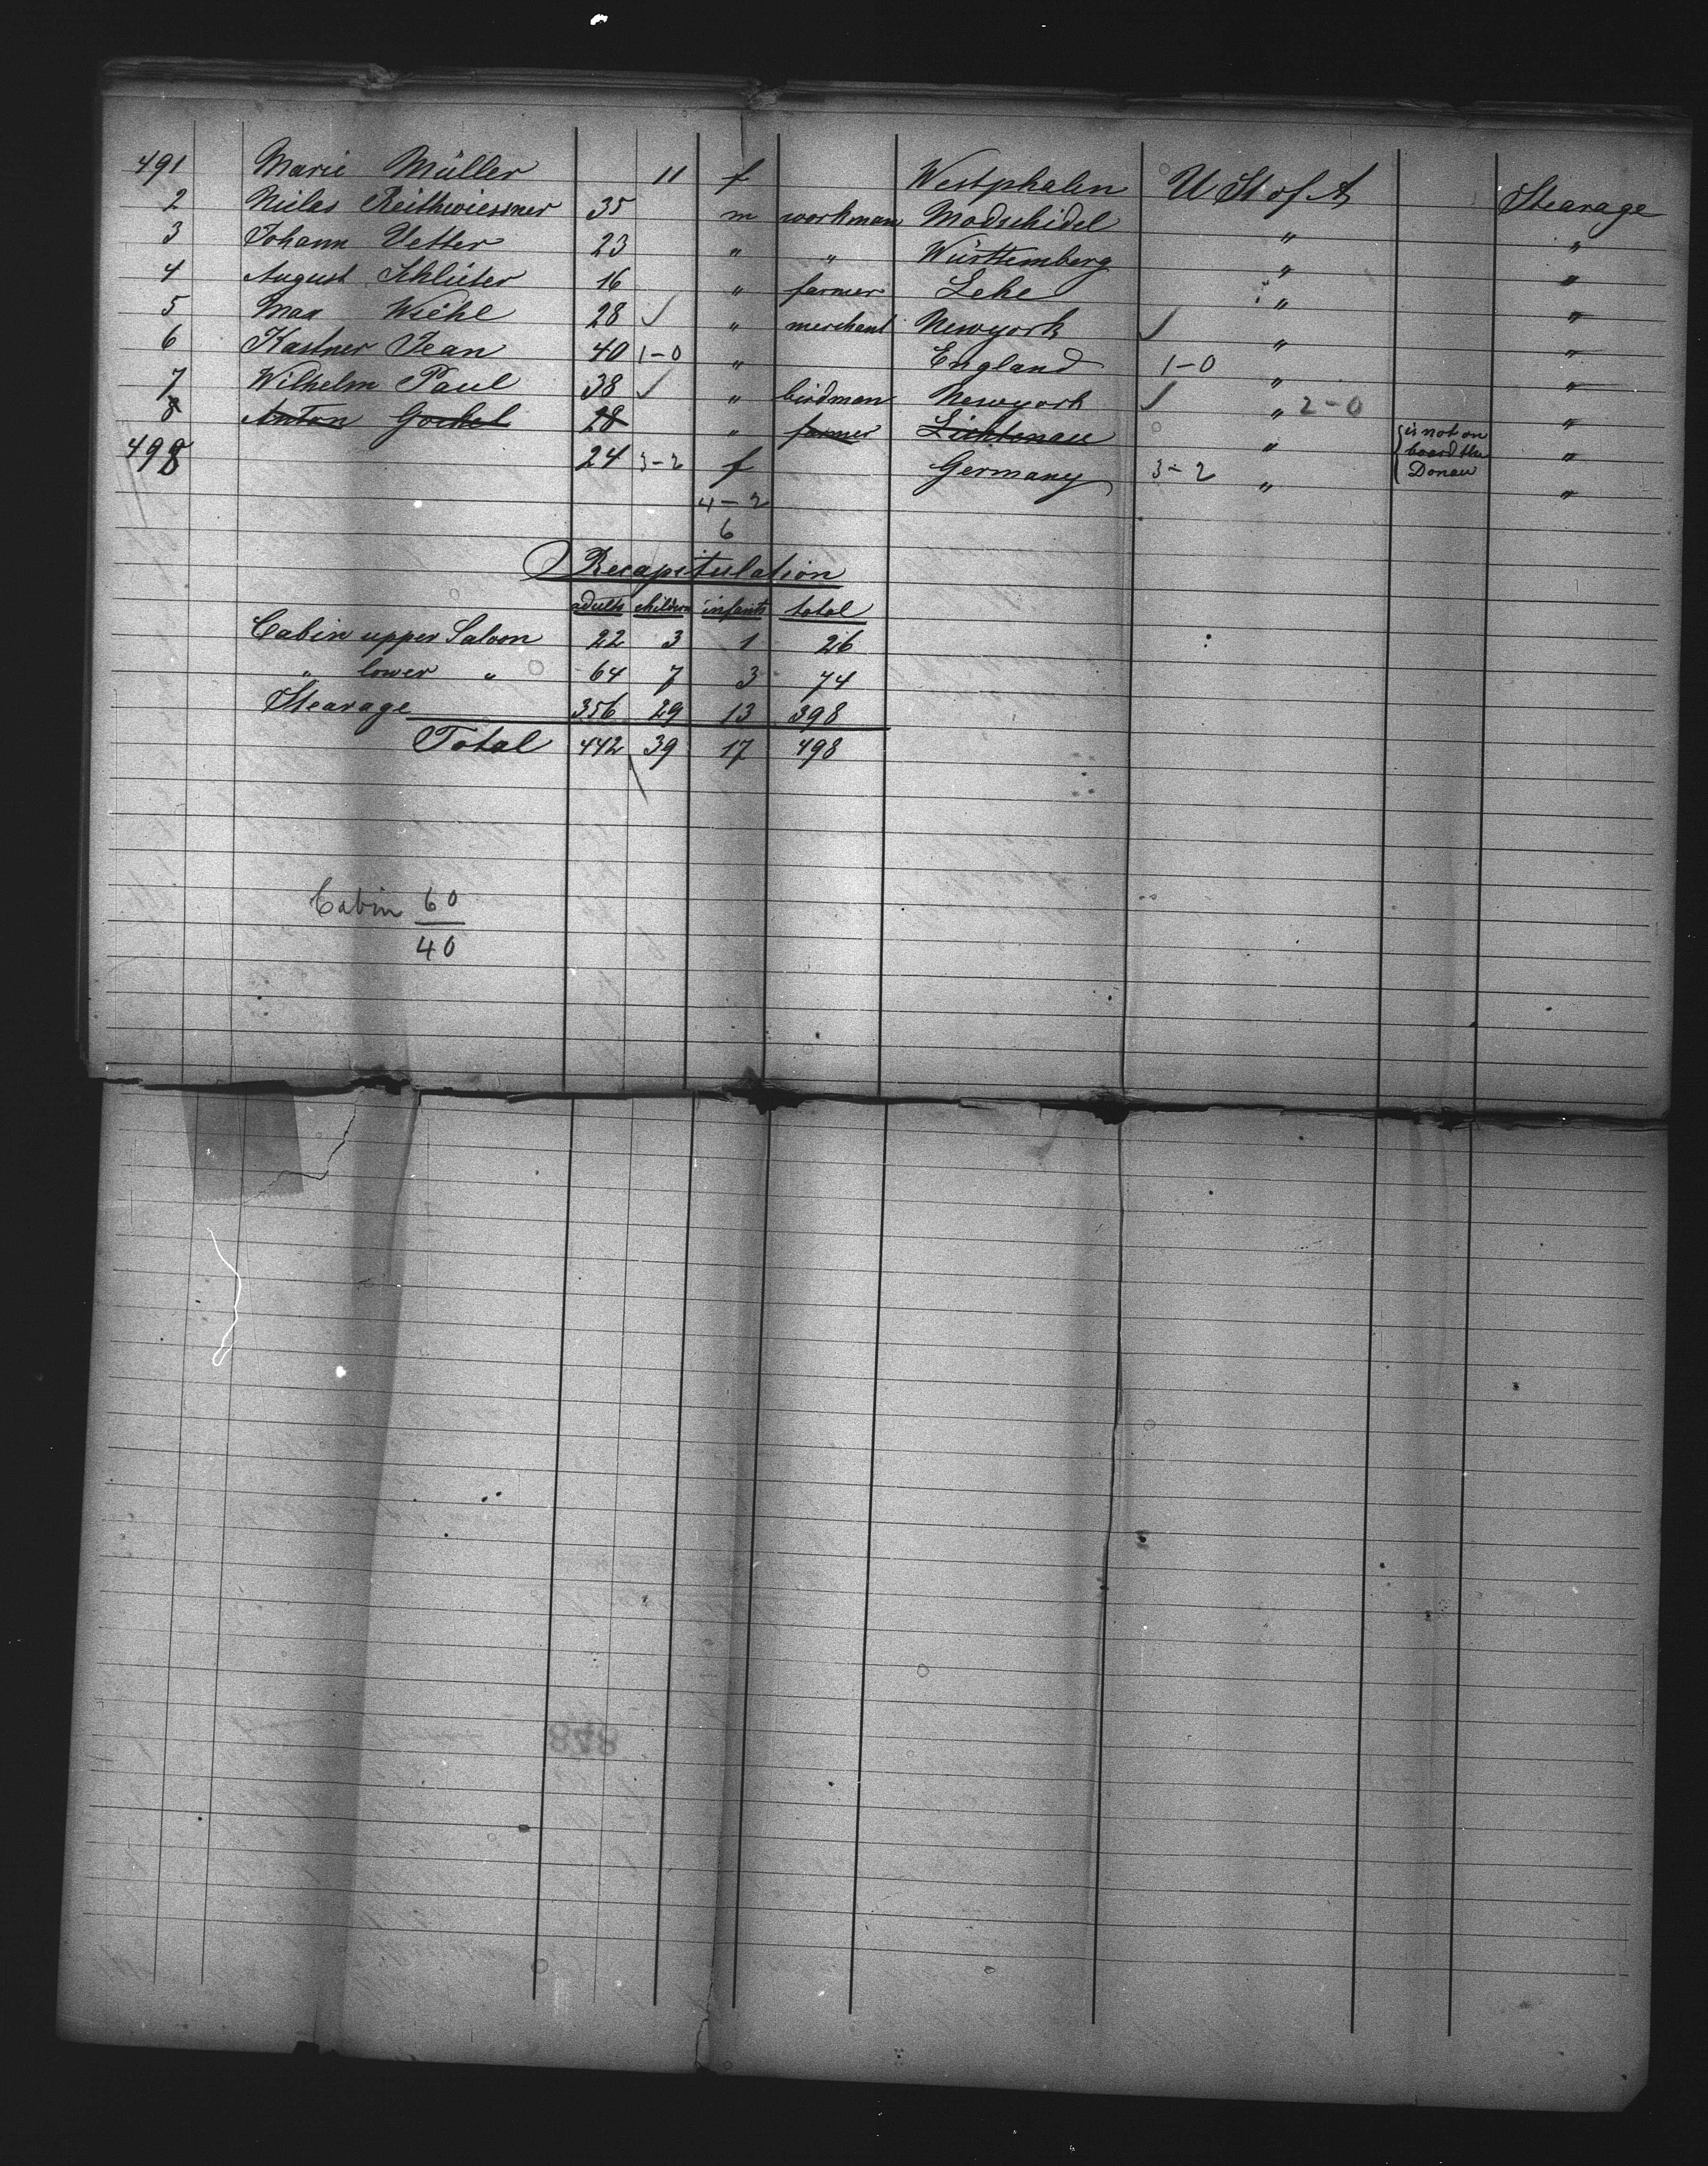 491 Marie Müller 11 f Westphalen U St of A Stearage
2 Niclas Reithwiessner 35 m workman Modschidel " "
3 Johann Vetter 23 " " Württemberg " "
4 August Schlüter 16 " farmer Lehe " "
5 Max Wiehl 28 ✓ " merchant Newyork ✓ " "
6 Kastner Jean 40 1-0 " England 1-0 " "
7 Wilhelm Paul 38 ✓ " birdman Newyork ✓ " 2-0 "
8 Anton Goebel 28 " farmer Lichtenau " is not on board the Donau "
498 24 3-2 f Germany 3-2 " "
4-2
6
Recapitulation
adults children infants total
Cabin upper Saloon 22 3 1 26
" lower " 64 7 3 74
Stearage 356 29 13 398
Total 442 39 17 498
Cabin 60
40